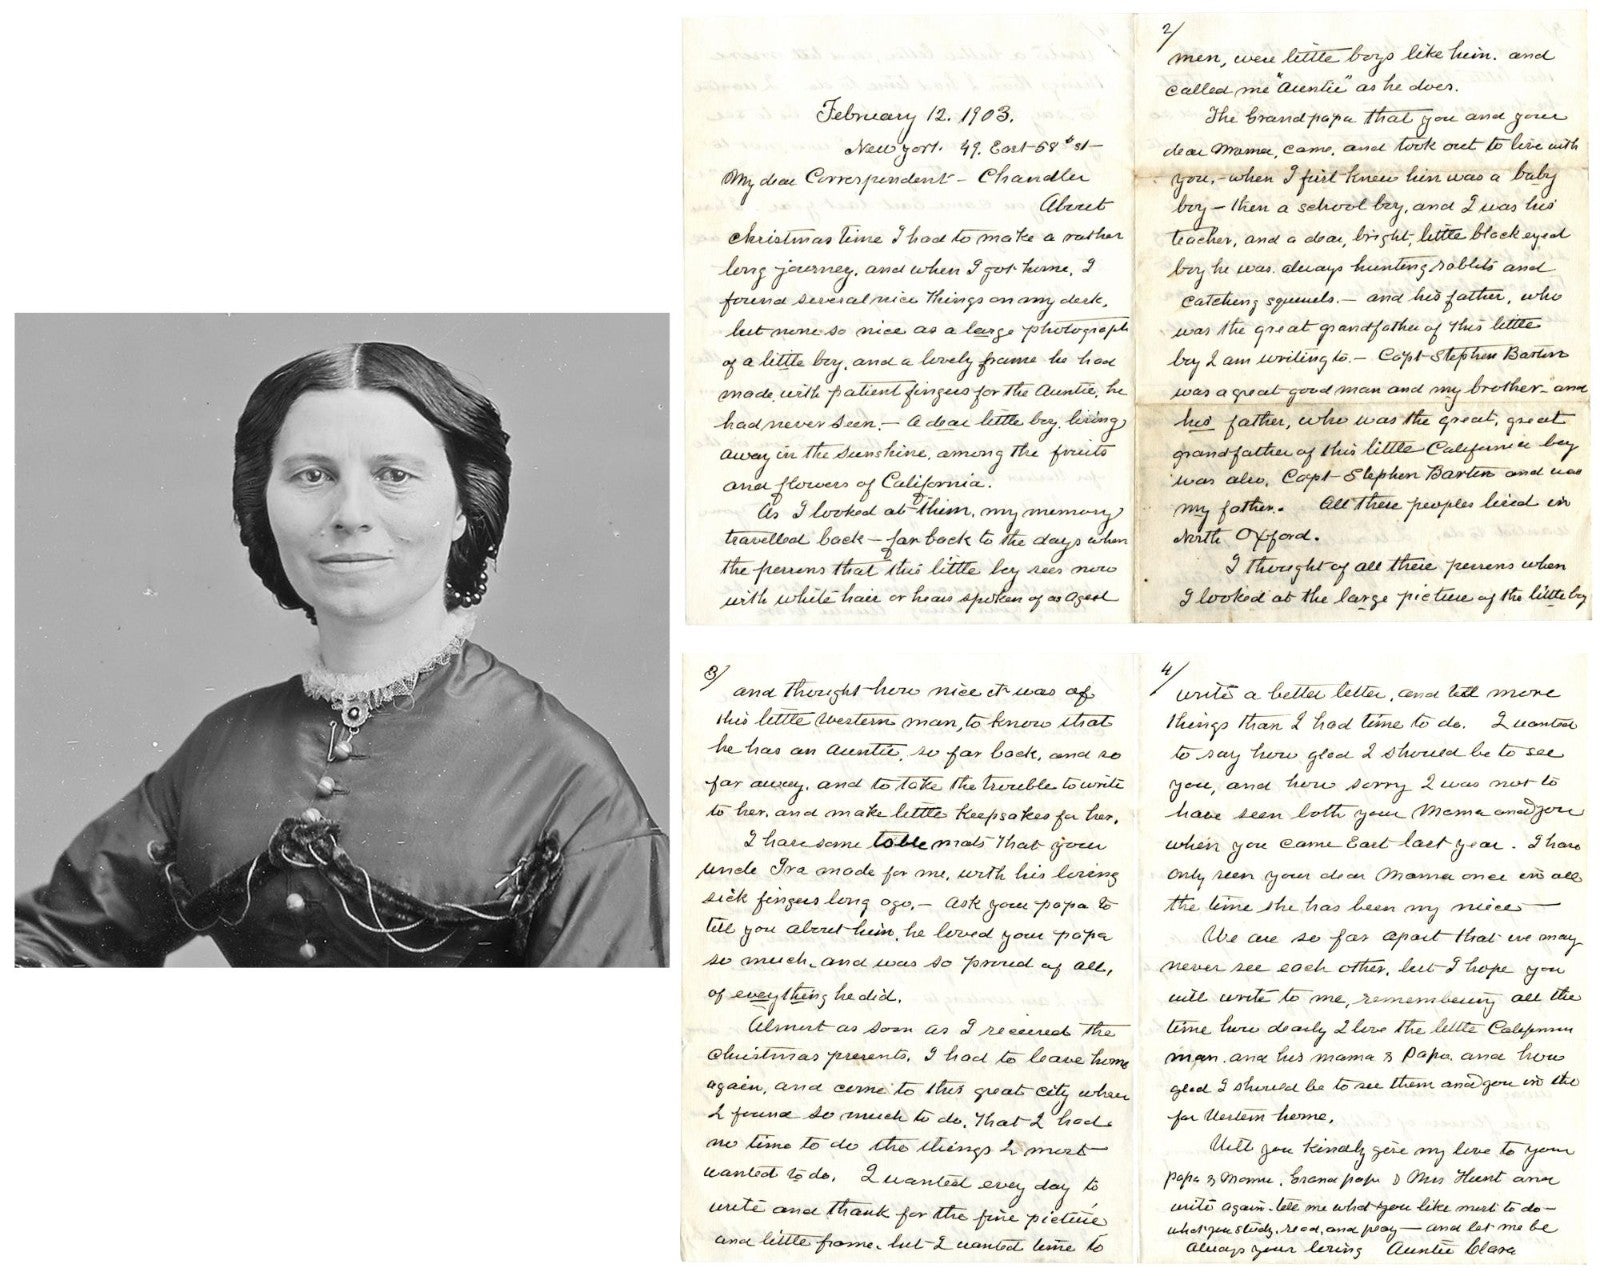 February 12. 1903.
New York. 49. East 58th st
My dear Correspondent - Chandler
About
Christmas time I had to make a rather
long journey, and when I got home, I
found several nice things on my desk,
but none so nice as a large photograph
of a little boy, and a lovely frame he had
made, with patient fingers for the Auntie, he
had never seen. - A dear little boy, living
away in the sunshine, among the fruits
and flowers of California.
As I looked at them, my memory
travelled back - far back to the days when
the persons that this little boy sees now
with white hair or hears spoken of as aged
2/
men, were little boys like him. and
called me "Auntie" as he does.
The Grandpapa that you and your
dear Mama, came, and took out to live with
you, - when I first knew him was a baby
boy - then a school boy, and I was his
teacher, and a dear, bright, little black eyed
boy he was. always hunting rabbits and
catching squirrels. - and his father, who
was the great grandfather of this little
boy I am writing to. - Capt Stephen Barton
was a great good man and my brother - and
his father, who was the great, great
grandfather of this little California boy
was also, Capt Stephen Barton and was
my father. All these peoples lived in
North Oxford.
I thought of all these persons when
I looked at the large picture of the little boy
3/
and thought how nice it was of
this little Western man, to know that
he has an Auntie, so far back, and so
far away, and to take the trouble to write
to her, and make little keepsakes for her.
I have some table mats that your
uncle Ira made for me, with his loving
sick fingers long ago, - ask your papa to
tell you about him, he loved your papa
so much, and was so proud of all,
of everything he did.
Almost as soon as I received the
Christmas presents, I had to leave home
again, and come to this great city where
I found so much to do, that I had
no time to do the things I most
wanted to do. I wanted every day to
write and thank for the fine picture
and little frame, but I wanted time to
4/
write a better letter, and tell more
things than I had time to do. I wanted
to say how glad I should be to see
you, and how sorry I was not to
have seen both your Mama and you
when you came East last year. I have
only seen your dear Mama once in all
the time she has been my niece
We are so far apart that we may
never see each other, but I hope you
will write to me, remembering all the
time how dearly I love the little California
man, and his mama & Papa, and how
glad I should be to see them and you in the
far Western home.
Will you kindly give my love to your
papa & Mama, Grandpapa & Mrs Hunt and
write again - tell me what you like most to do -
what you study, read, and play - and let me be
always your loving Auntie Clara